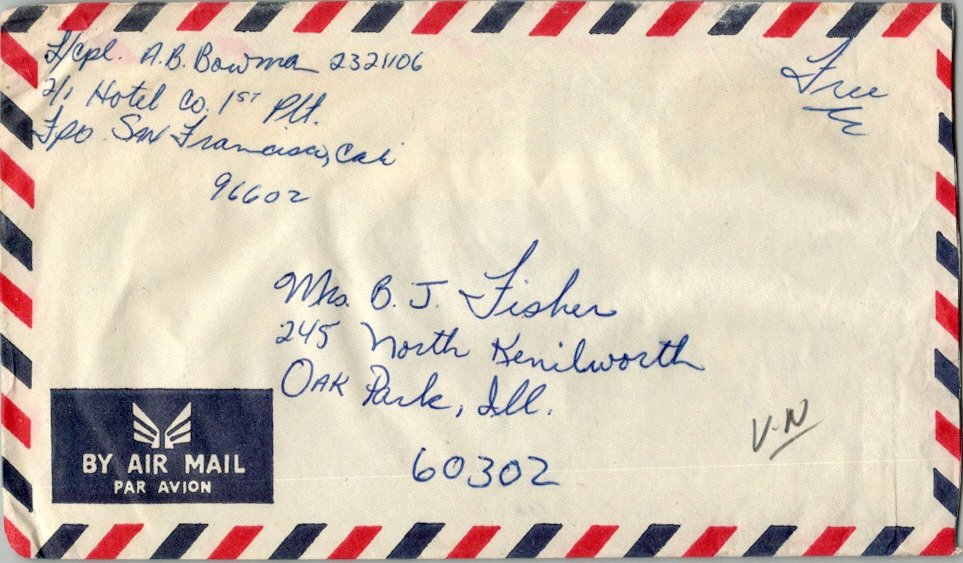 L/cpl. A.B. Bowman 2321106
2/1 Hotel Co. 1ST Plt.
Fpo. San Francisco, Cali
96602
Free
Mrs. B. J. Fisher
245 North Kenilworth
Oak Park, Ill.
60302
V-N
BY AIR MAIL
PAR AVION